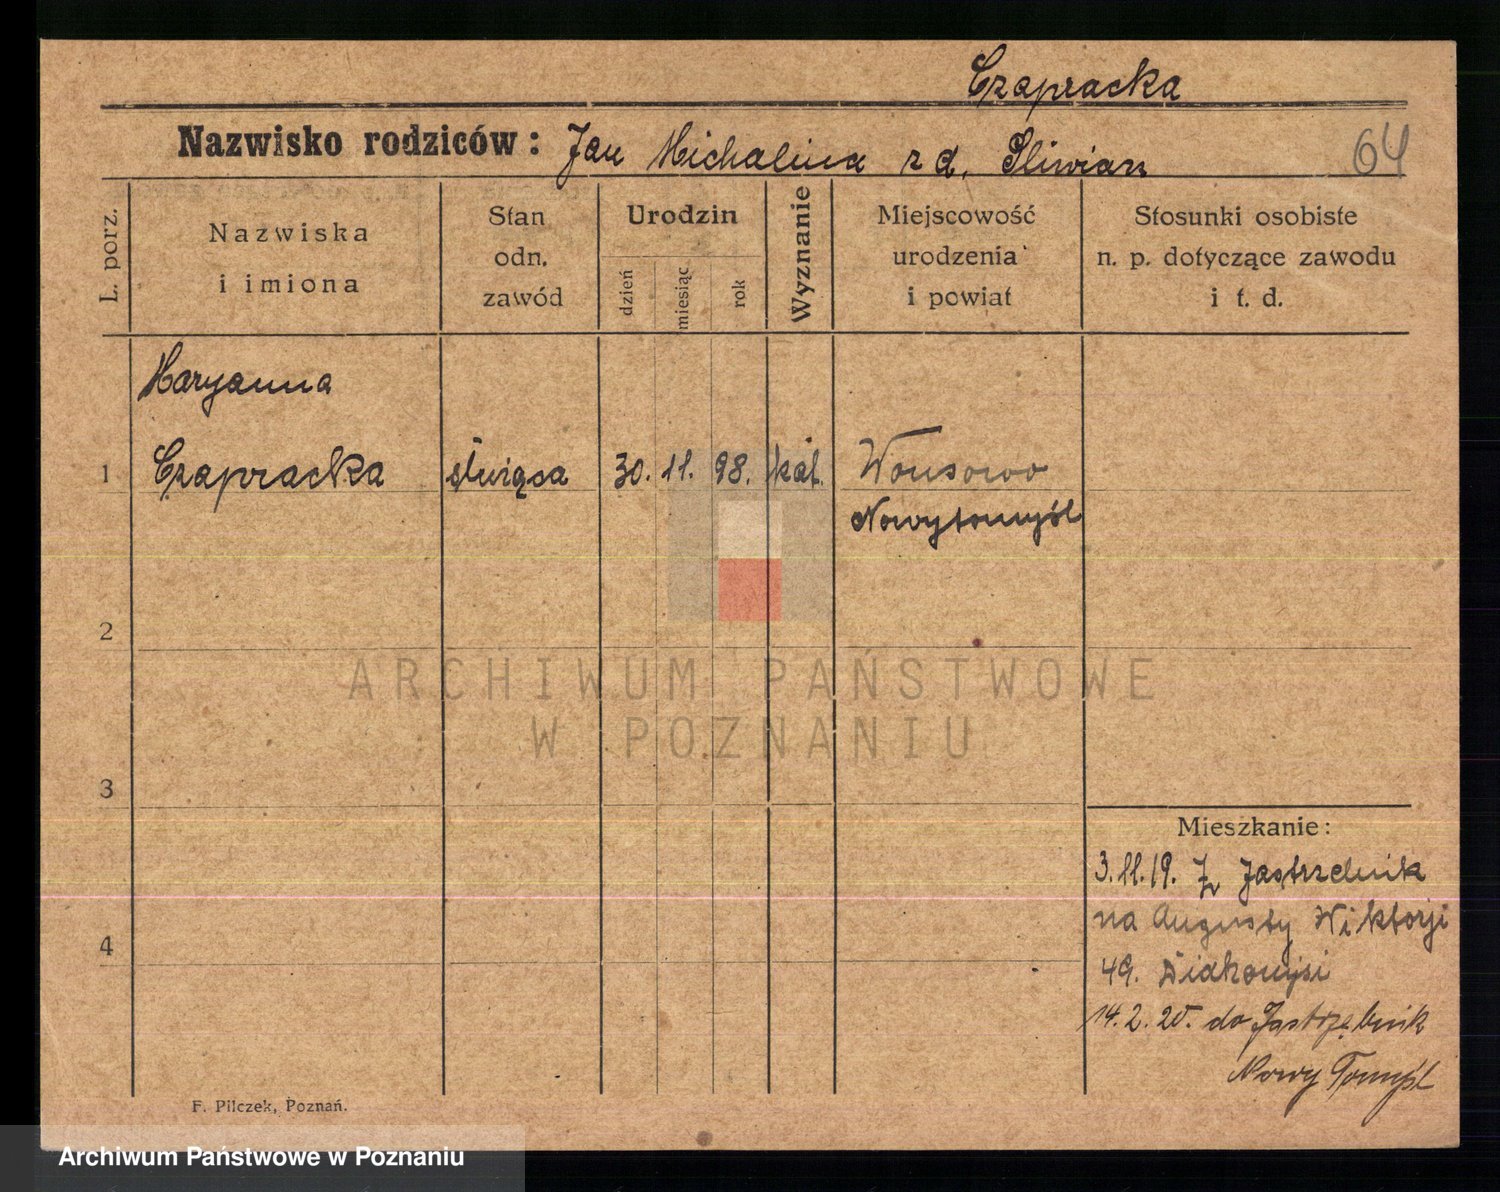 Czapracka
Nazwisko rodziców: Jan Michalina z d. Śliwian
64
L. porz.
Nazwiska
i imiona
Stan
odn.
zawód
Urodzin
dzień
miesiąc
rok
Wyznanie
Miejscowość
urodzenia
i powiat
Stosunki osobiste
n. p. dotyczące zawodu
i t. d.
Maryanna
1 Czapracka służąca 30. 11. 98. kat. Wonsowo
Nowytomyśl
2
ARCHIWUM PAŃSTWOWE
W POZNANIU
3
Mieszkanie:
3.11.19. z Jastrzebnik
na Augusty Wiktorji
4 49. Diakonysi
14.2.20. do Jastrzębnik
Nowy Tomyśl
F. Pilczek, Poznań.
Archiwum Państwowe w Poznaniu